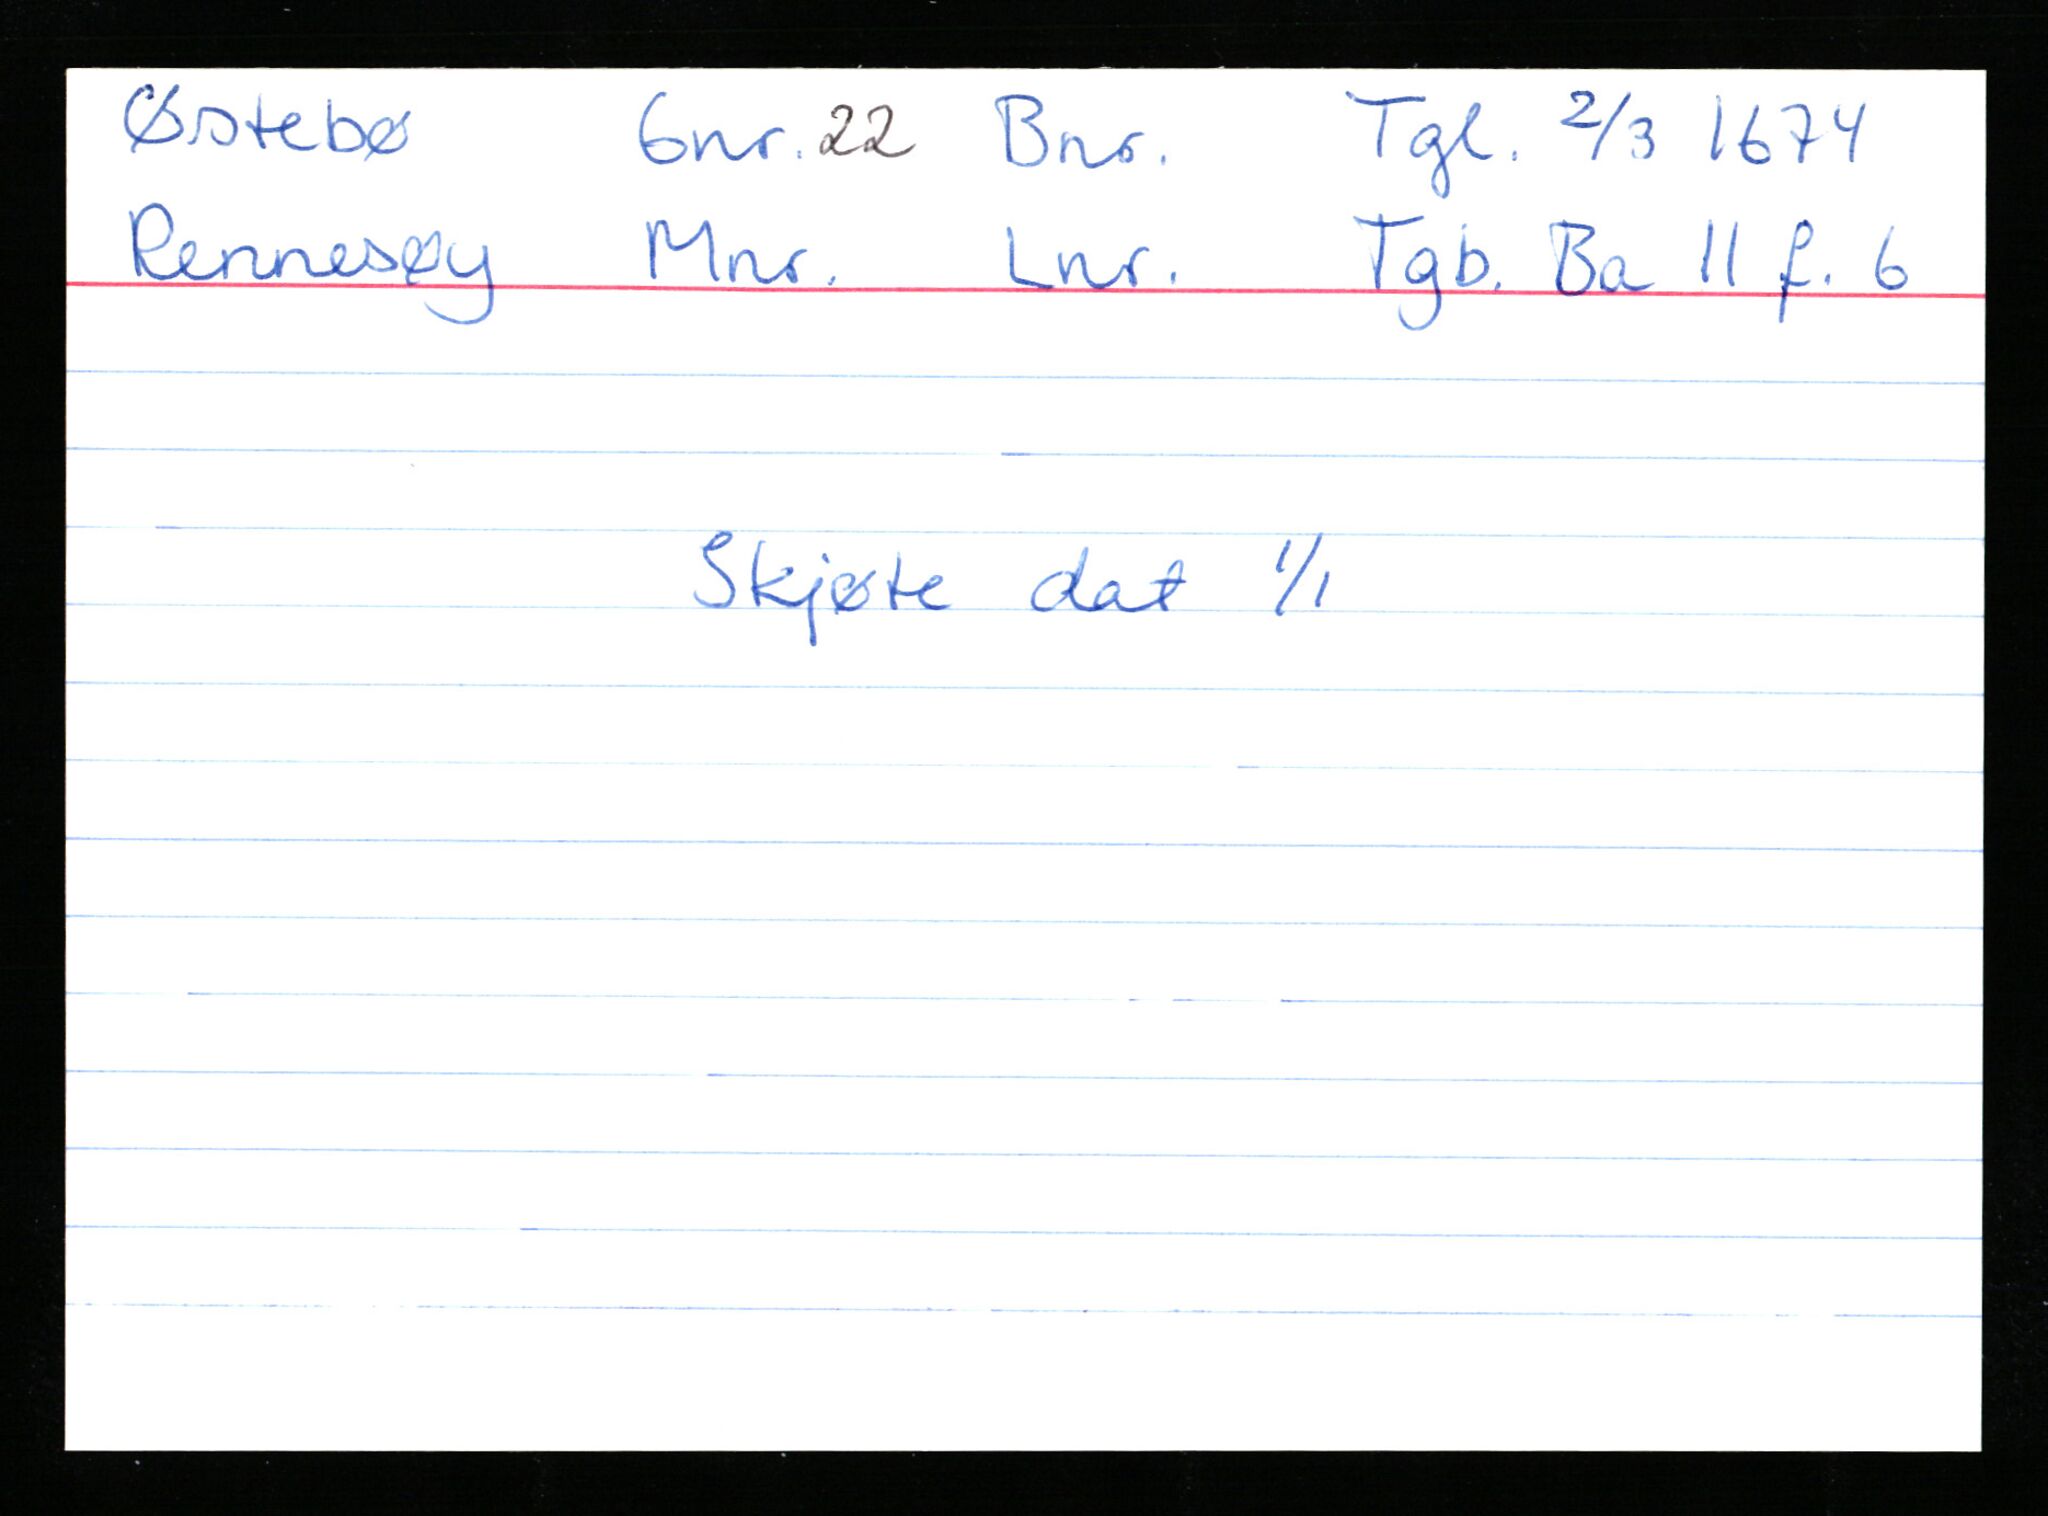 Østebø Gnr. 22 Bnr. Tgl. 2/3 1674
Rennesøy Mnr. Lnr. Tgb. Ba 11 f. 6
Skjøte dat 1/1